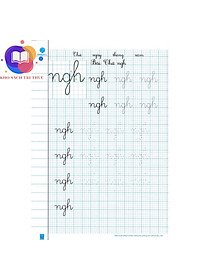 KHO SÁCH TRI THỨC
Thứ ngày tháng năm
Bài: Chữ ngh
ngh ngh ngh ngh ngh
ngh ngh ngh ngh
ngh ngh ngh ngh ngh
ngh ngh ngh ngh ngh
ngh ngh ngh ngh ngh
ngh